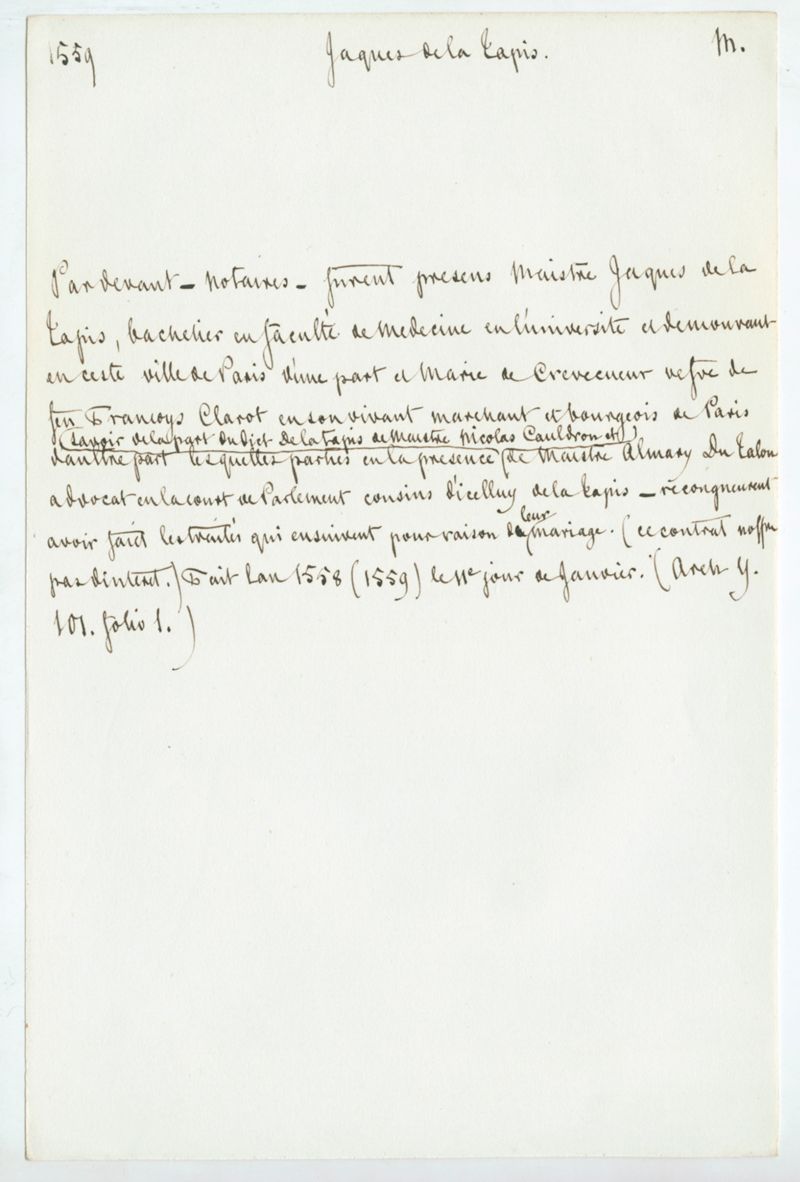 1559 Jaques de la Tapis. M.
Par devant — notaires — furent presens Maistre Jaques de la
Tapis, bachelier en faculté de medecine en l'université et demourant
en ceste ville de Paris d'une part et Marie de Crevecueur vefve de
feu Francoys Clarot en son vivant marchant et bourgeois de Paris
(savoir de la part dudict de la Tapis de Maistre Nicolas Cauldron et)
d'aultre part lesquelles parties en la presence de Maistre Almary Du Talon
advocat en la court de Parlement cousins d'icelluy de la Tapis — recongneurent
leur
avoir faict les traités qui ensuivent pour raison de mariage. (ce contrat n'offre
pas d'interet.) Fait l'an 1558 (1559) le 11e jour de Janvier. (Arch Y.
101. folio 1.)